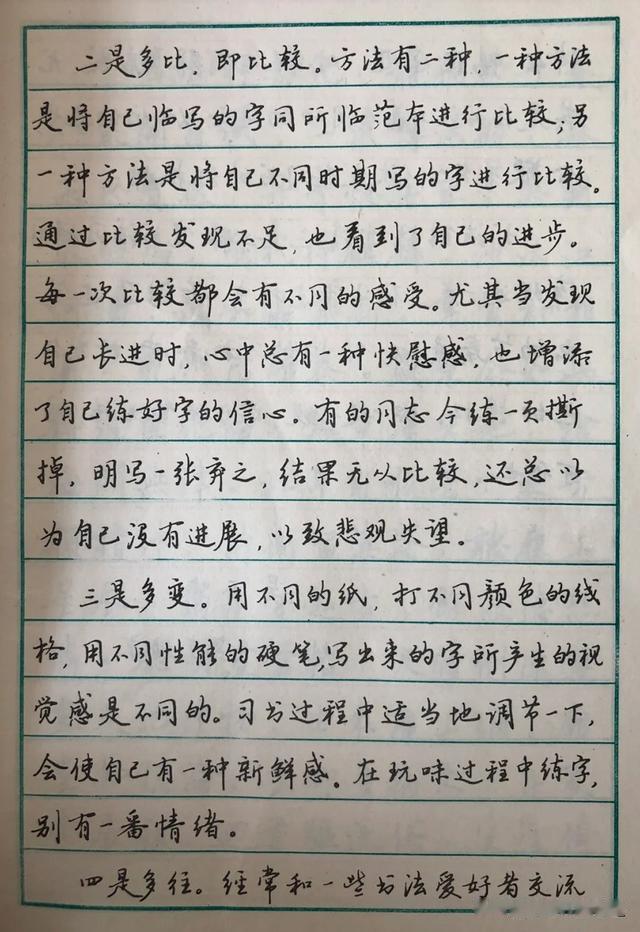 二是多比，即比较。方法有二种，一种方法
是将自己临写的字同所临范本进行比较；另
一种方法是将自己不同时期写的字进行比较。
通过比较发现不足，也看到了自己的进步。
每一次比较都会有不同的感受。尤其当发现
自己长进时，心中总有一种快慰感，也增添
了自己练好字的信心。有的同志今练一页撕
掉，明写一张弃之，结果无从比较，还总以
为自己没有进展，以致悲观失望。
三是多变。用不同的纸，打不同颜色的线
格，用不同性能的硬笔，写出来的字所产生的视
觉感是不同的。习书过程中适当地调节一下，
会使自己有一种新鲜感。在玩味过程中练字，
别有一番情绪。
四是多往。经常和一些书法爱好者交流